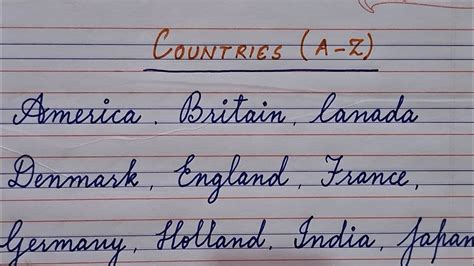 COUNTRIES (A-Z)
America, Britain, Canada
Denmark, England, France,
Germany, Holland, India, Japan